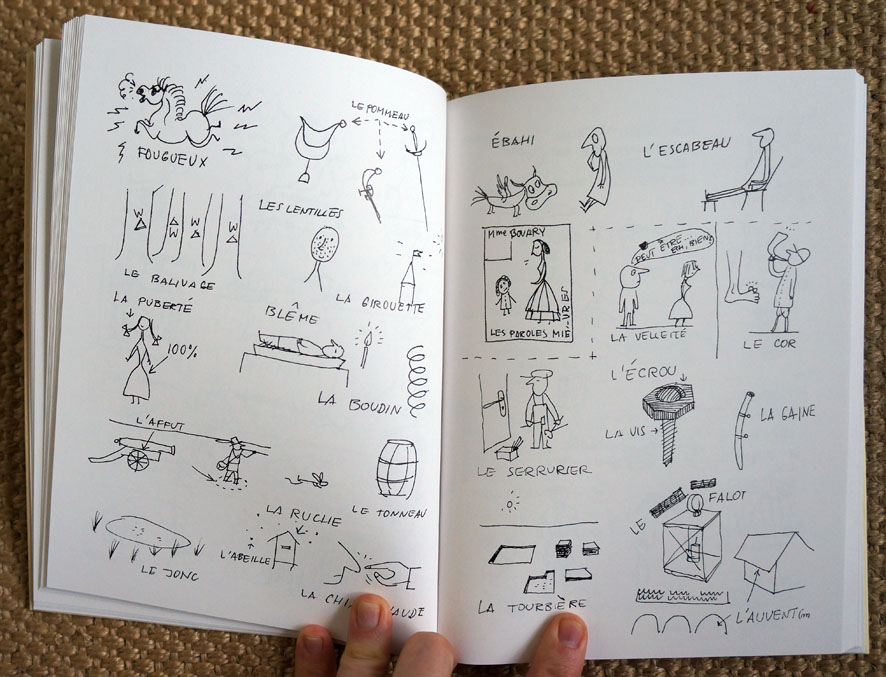 FOUGUEUX
LE POMMEAU
LES LENTILLES
W
W
W
W
LE BALIVAGE
LA GIROUETTE
LA PUBERTÉ
100%
BLÊME
LA BOUDIN
L'AFFUT
LE TONNEAU
LA RUCHE
L'ABEILLE
LE JONC
LA
AUDE
ÉBAHI
L'ESCABEAU
Mme BOVARY
LES PAROLES MIÈVRES
PEUT ÊTRE
BIEN
LA VELLEITÉ
LE COR
LE SERRURIER
L'ÉCROU
LA VIS
LA GAINE
LE
FALOT
LA TOURBIÈRE
L'AUVENT (m)